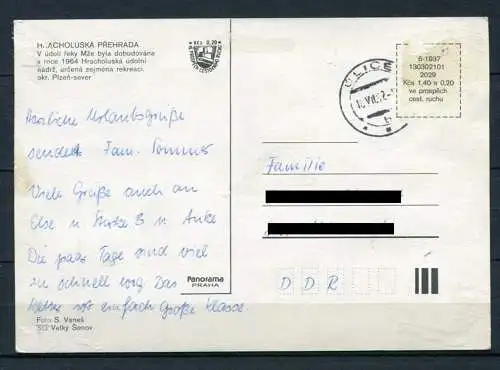 HRACHOLUSKÁ PŘEHRADA
V údolí řeky Mže byla dobudována
v roce 1964 Hracholuská údolní
nádrž, určená zejména rekreaci.
okr. Plzeň-sever
Kčs 0,20
Herzliche Urlaubsgrüße
sendet Fam. Tommer
Viele Grüße auch an
Else u
u Anke
Die paar Tage sind viel
zu schnell weg Das
Wetter ist einfach große Klasse.
Panorama
PRAHA
Foto S. Vaneš
SG Velký Šenov
6-1837
130302101
2029
Kčs 1,40 + 0,20
ve prospěch
cest. ruchu
Familie
DDR